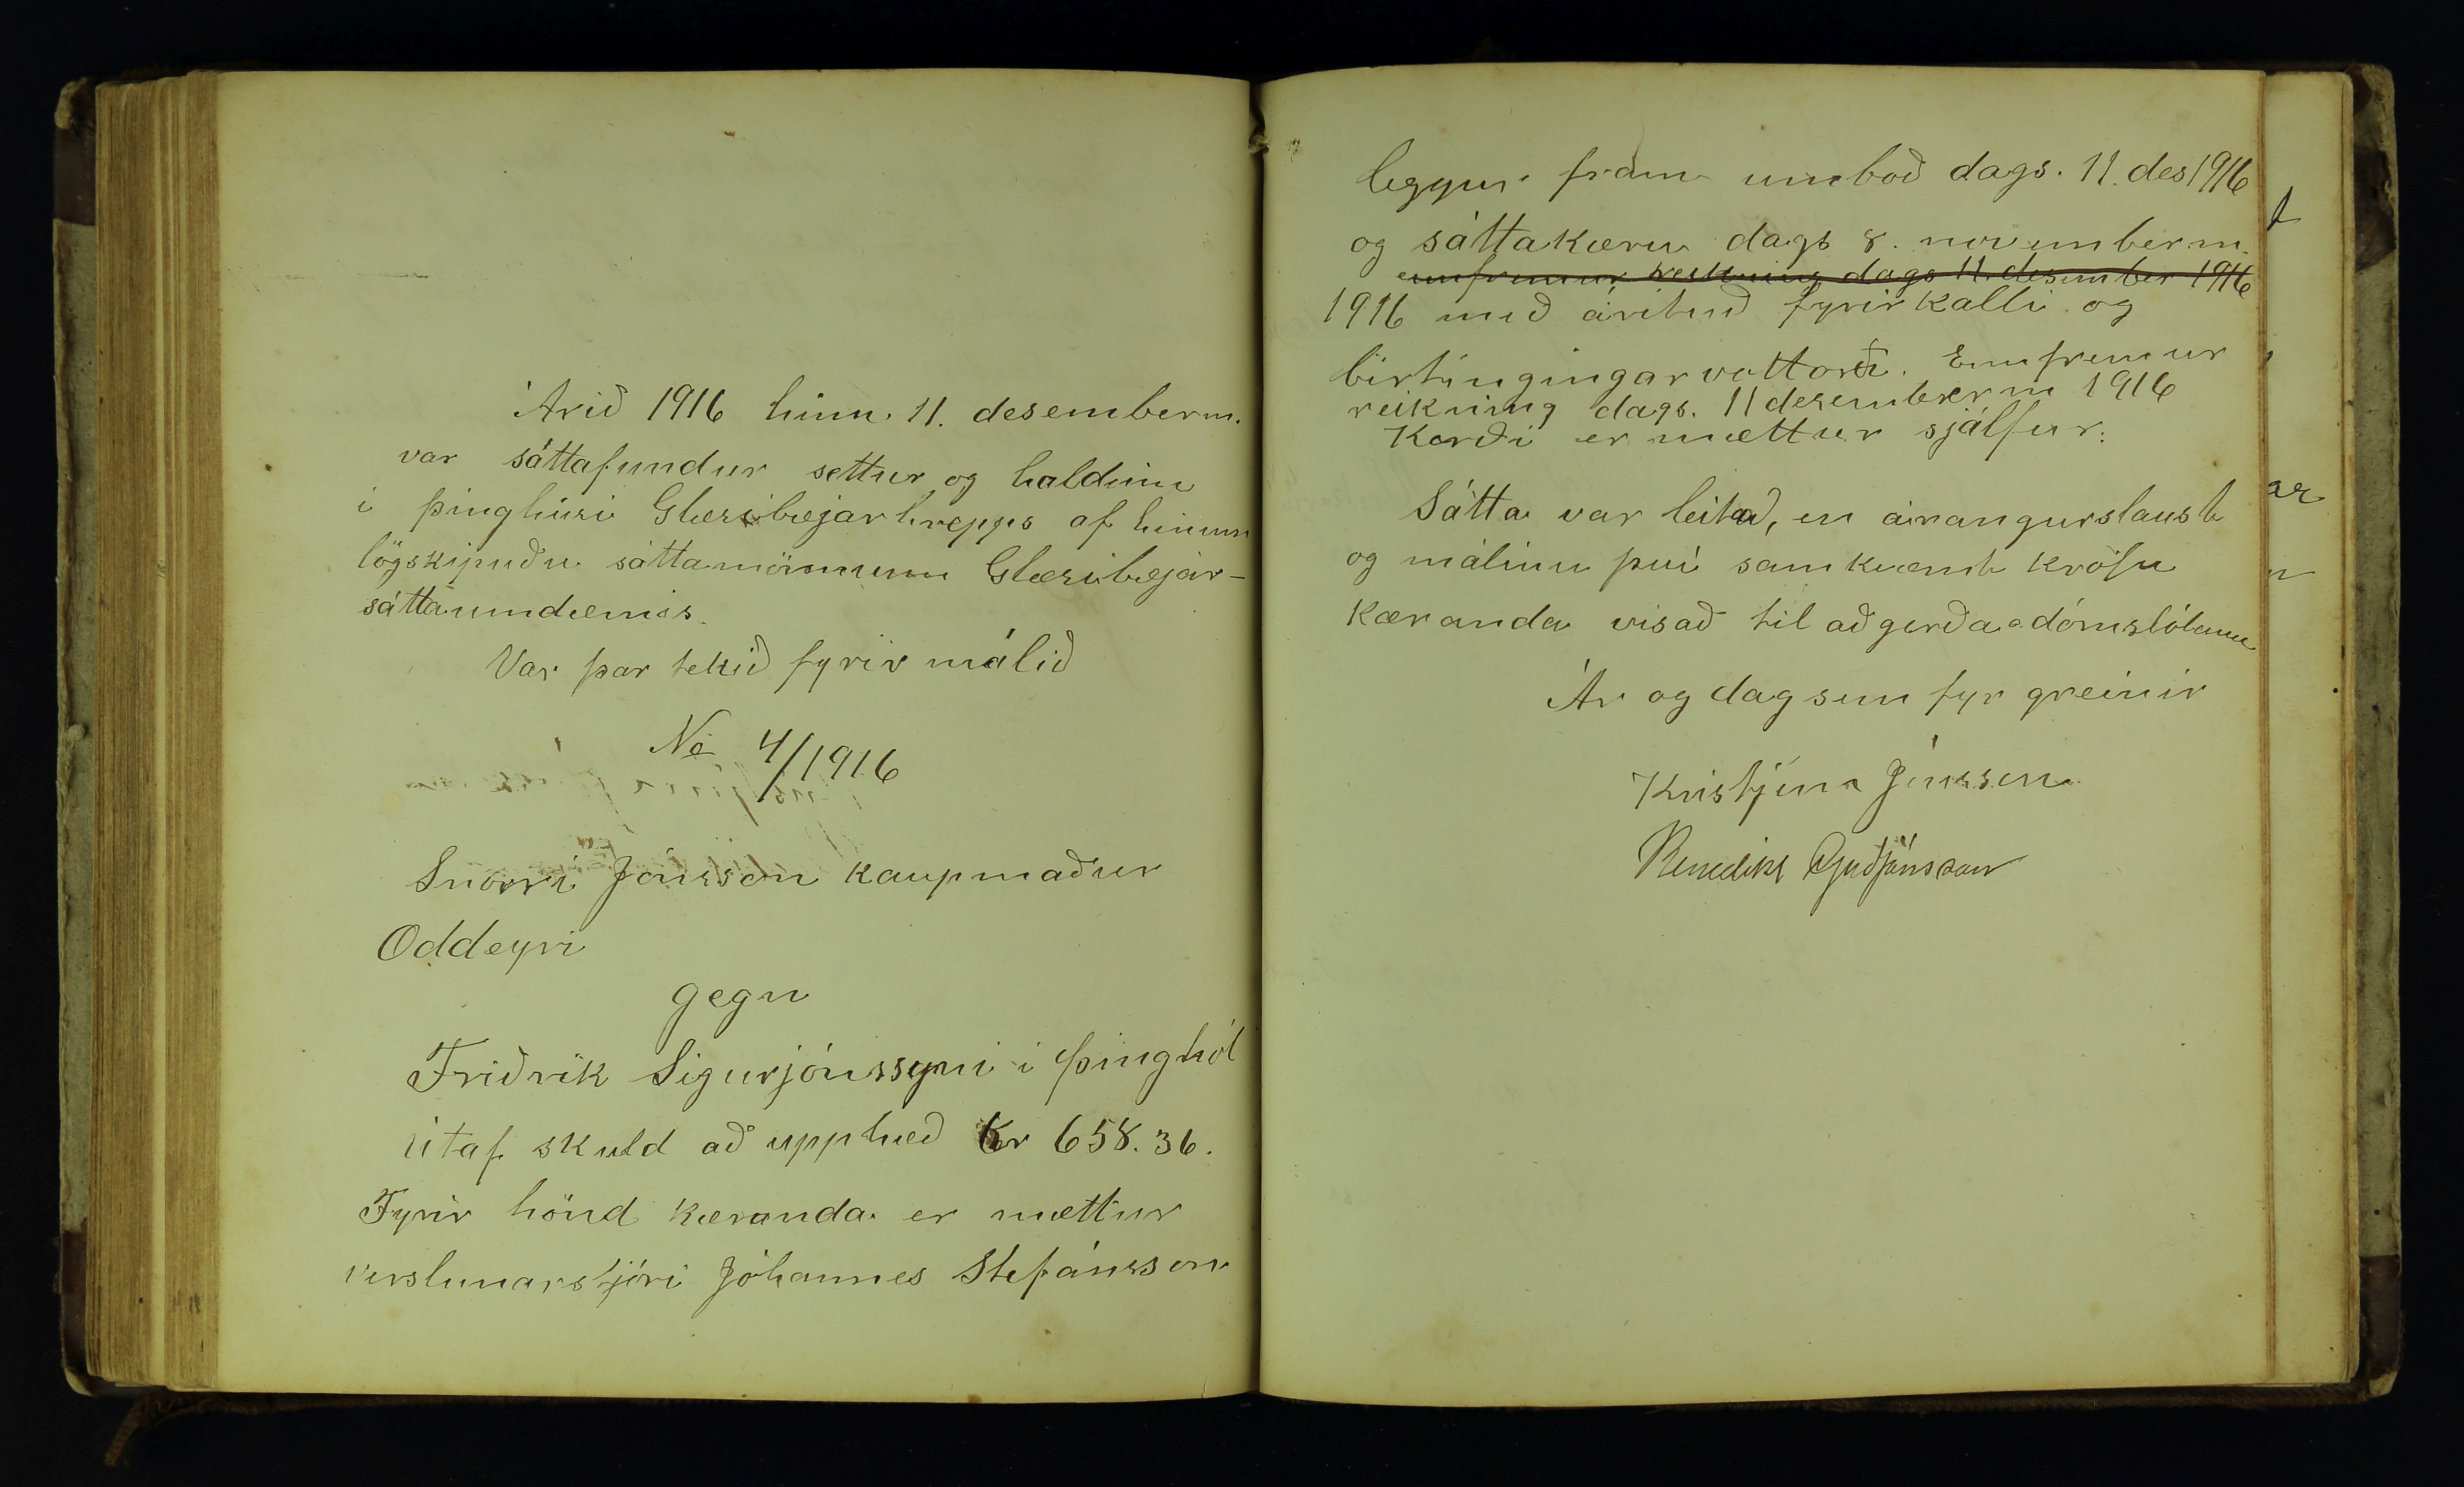 Árið 1916 hinn 11. desemberm.
var sáttafundur settur og haldinn
i þinghúsi Glæsibæjarhrepps af hinum
lögskipuðu sáttamönnum Glæsibæjar-
sáttaumdæmis.
Var þar tekið fyrir málið
No 4/1916
Snorri Jónsson kaupmaður
Oddeyri
gegn
Friðrik Sigurjónssyni i Þinghól
útaf skuld að upphæð Kr 658.36.
Fyrir hönd kæranda er mættur
verslunarstjóri Jóhannes Stefánsson
leggur fram umboð dags. 11. des 1916
og sáttakæru dags 8. novemberm.
ennfremur reikning dags 11. desember 1916
1916 með árituð fyrirkalli og
birtingingarvottorði. Ennfremur
reikning dags. 11 desemberm 1916
Kærði er mættur sjálfur.
Sátta var leitað, en árangurslaust
og málinu því samkvæmt kröfu
kæranda visað til aðgerða dómstólanna
Ár og dag sem fyr greinir
Kristján Jónsson
Benedikt Guðjónsson